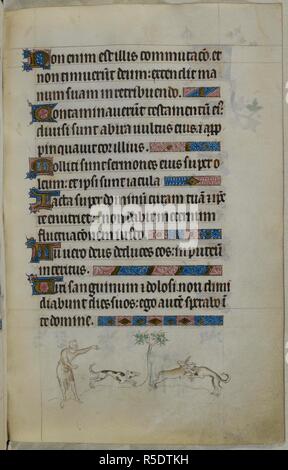 Non enim est illis commutacō. et
non timuerūt deum: extendit ma
num suam in retribuendo.
Contaminauerūt testamentū eiꝰ
diuisi sunt ab ira uultus eius: ⁊ app
pinquauit cor illius.
Moliti sunt sermones eius super o
leum: et ipsi sunt iacula
Iacta super dominum curam tuā ⁊ ip̄e
te enutriet: non dabit in eternum
fluctuacōnem iusto
Tu uero deus deduces eos: in puteum
interitus.
Uiri sanguinum ⁊ dolosi non dimi
diabunt dies suos: ego autē sperabo ī
te domine.
alamy
Image ID: R5DTKH
www.alamy.com